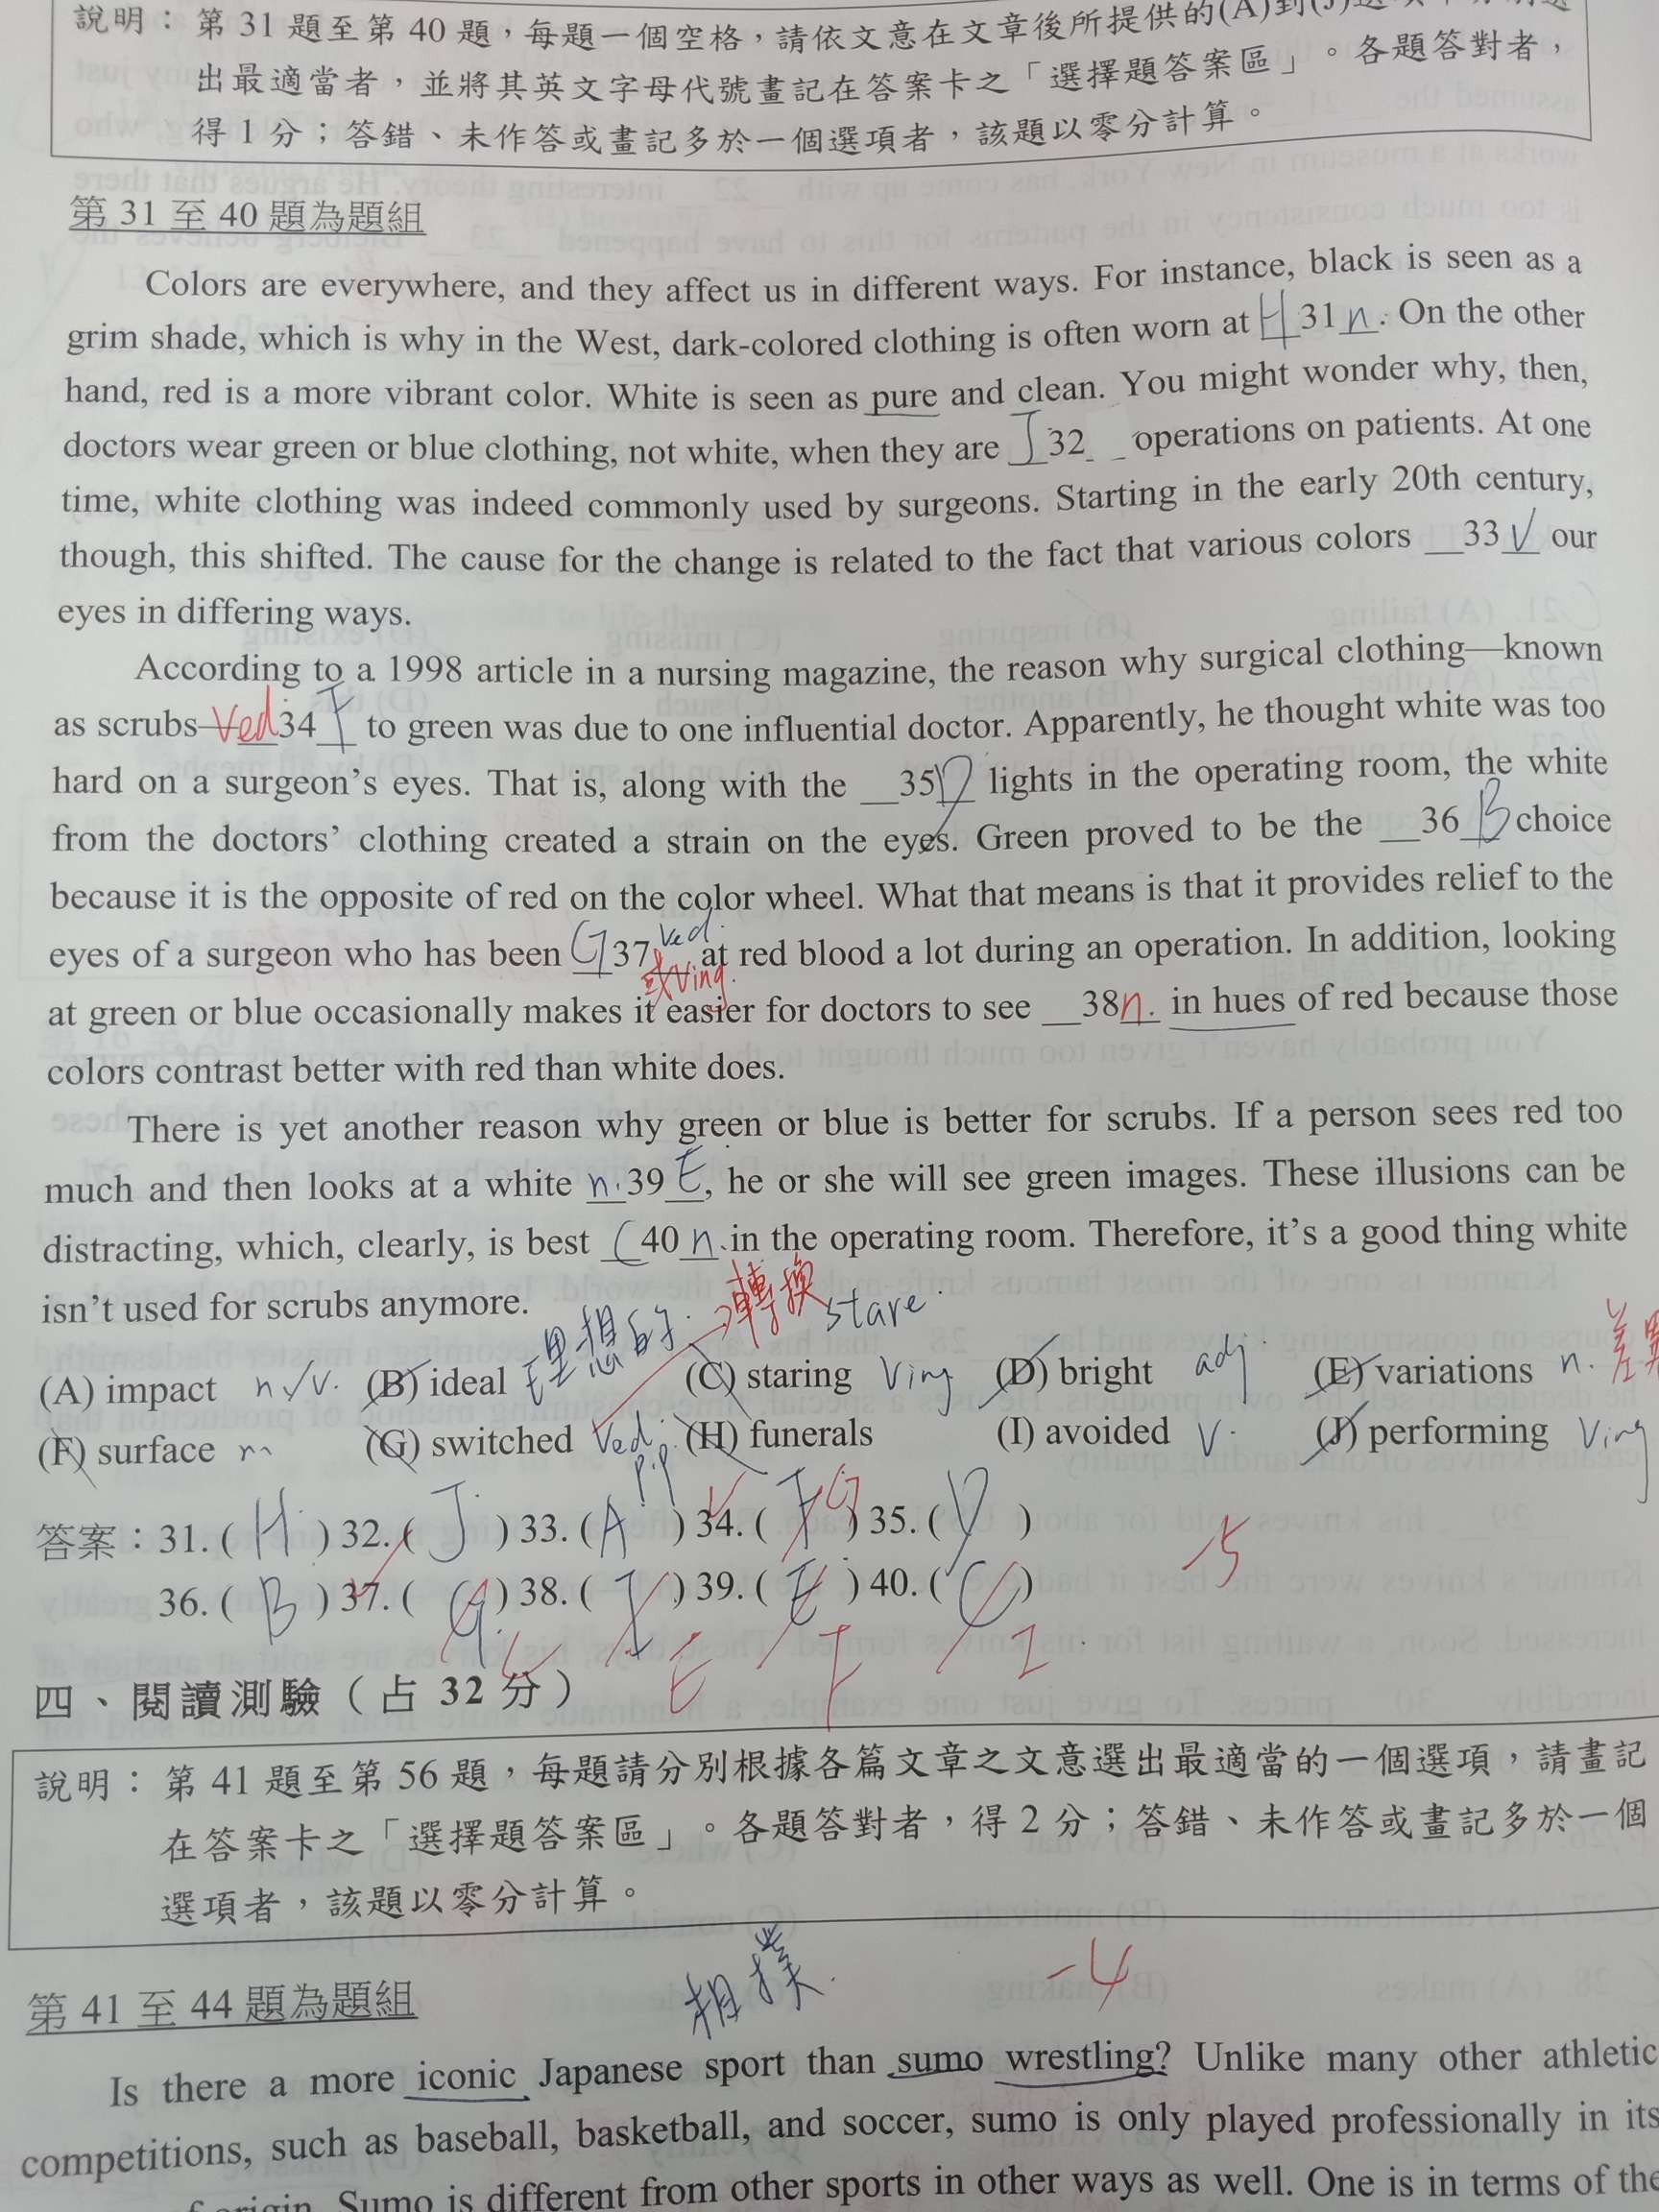 說明：第 31 題至第 40 題，每題一個空格，請依文意在文章後所提供的(A)到(J)選項中分別選
出最適當者，並將其英文字母代號畫記在答案卡之「選擇題答案區」。各題答對者，
得 1 分；答錯、未作答或畫記多於一個選項者，該題以零分計算。
第 31 至 40 題為題組
Colors are everywhere, and they affect us in different ways. For instance, black is seen as a
grim shade, which is why in the West, dark-colored clothing is often worn at H 31 n. . On the other
hand, red is a more vibrant color. White is seen as pure and clean. You might wonder why, then,
doctors wear green or blue clothing, not white, when they are J 32 operations on patients. At one
time, white clothing was indeed commonly used by surgeons. Starting in the early 20th century,
though, this shifted. The cause for the change is related to the fact that various colors 33 V our
eyes in differing ways.
According to a 1998 article in a nursing magazine, the reason why surgical clothing—known
as scrubs— Ved 34 F to green was due to one influential doctor. Apparently, he thought white was too
hard on a surgeon's eyes. That is, along with the 35 D lights in the operating room, the white
from the doctors' clothing created a strain on the eyes. Green proved to be the 36 B choice
because it is the opposite of red on the color wheel. What that means is that it provides relief to the
eyes of a surgeon who has been G 37 Ved. at red blood a lot during an operation. In addition, looking
或Ving.
at green or blue occasionally makes it easier for doctors to see 38 n. in hues of red because those
colors contrast better with red than white does.
There is yet another reason why green or blue is better for scrubs. If a person sees red too
much and then looks at a white n. 39 E , he or she will see green images. These illusions can be
distracting, which, clearly, is best C 40 n. in the operating room. Therefore, it's a good thing white
isn't used for scrubs anymore.
理想的. →轉換 stare.
(A) impact n/v. (B) ideal (C) staring Ving (D) bright adj. (E) variations n. 差異
(F) surface n (G) switched Ved. p.p (H) funerals (I) avoided V. (J) performing Ving
答案：31. ( H ) 32. ( J ) 33. ( A ) 34. ( F G ) 35. ( D )
-5
36. ( B ) 37. ( G ) 38. ( I ) 39. ( E ) 40. ( C )
C E F I
四、閱讀測驗（占 32 分）
說明：第 41 題至第 56 題，每題請分別根據各篇文章之文意選出最適當的一個選項，請畫記
在答案卡之「選擇題答案區」。各題答對者，得 2 分；答錯、未作答或畫記多於一個
選項者，該題以零分計算。
相撲. -4
第 41 至 44 題為題組
Is there a more iconic Japanese sport than sumo wrestling? Unlike many other athletic
competitions, such as baseball, basketball, and soccer, sumo is only played professionally in its
origin. Sumo is different from other sports in other ways as well. One is in terms of the